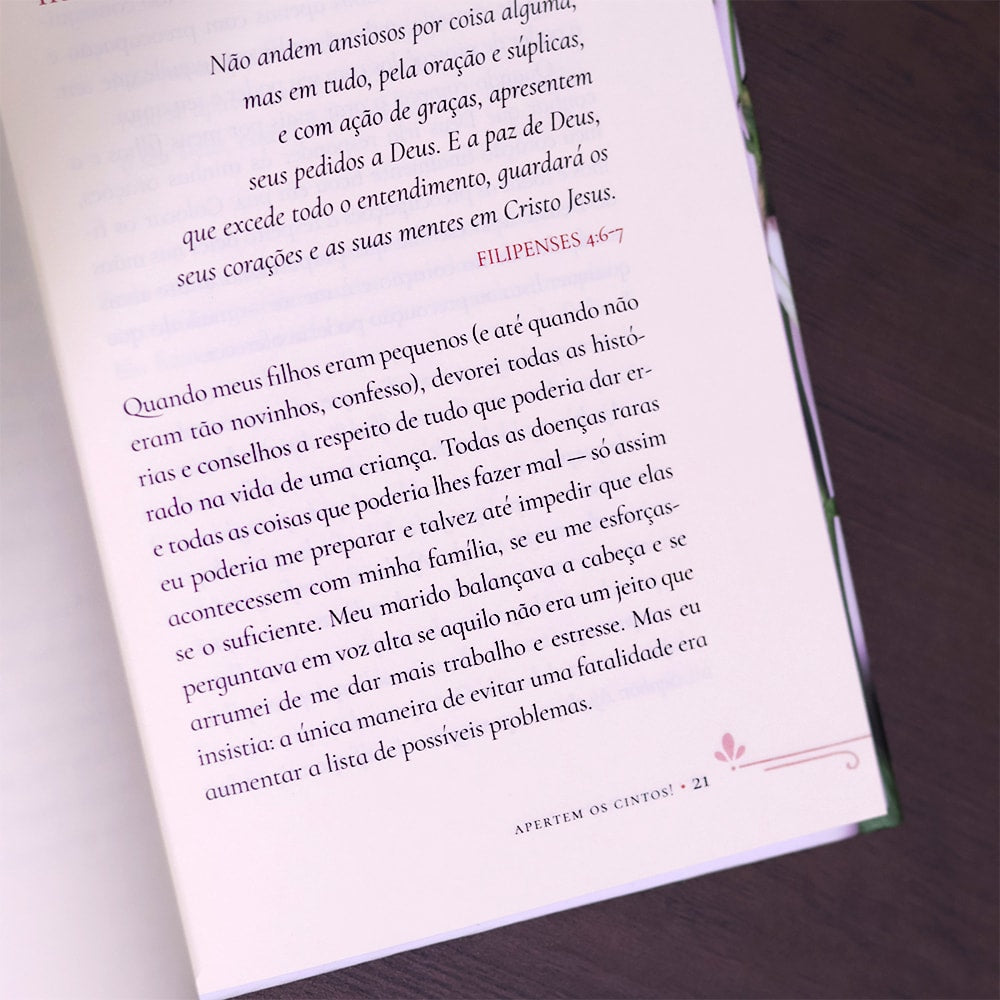 Não andem ansiosos por coisa alguma,
mas em tudo, pela oração e súplicas,
e com ação de graças, apresentem
seus pedidos a Deus. E a paz de Deus,
que excede todo o entendimento, guardará os
seus corações e as suas mentes em Cristo Jesus.
FILIPENSES 4:6-7
Quando meus filhos eram pequenos (e até quando não
eram tão novinhos, confesso), devorei todas as histó-
rias e conselhos a respeito de tudo que poderia dar er-
rado na vida de uma criança. Todas as doenças raras
e todas as coisas que poderia lhes fazer mal — só assim
eu poderia me preparar e talvez até impedir que elas
acontecessem com minha família, se eu me esforças-
se o suficiente. Meu marido balançava a cabeça e se
perguntava em voz alta se aquilo não era um jeito que
arrumei de me dar mais trabalho e estresse. Mas eu
insistia: a única maneira de evitar uma fatalidade era
aumentar a lista de possíveis problemas.
APERTEM OS CINTOS! • 21